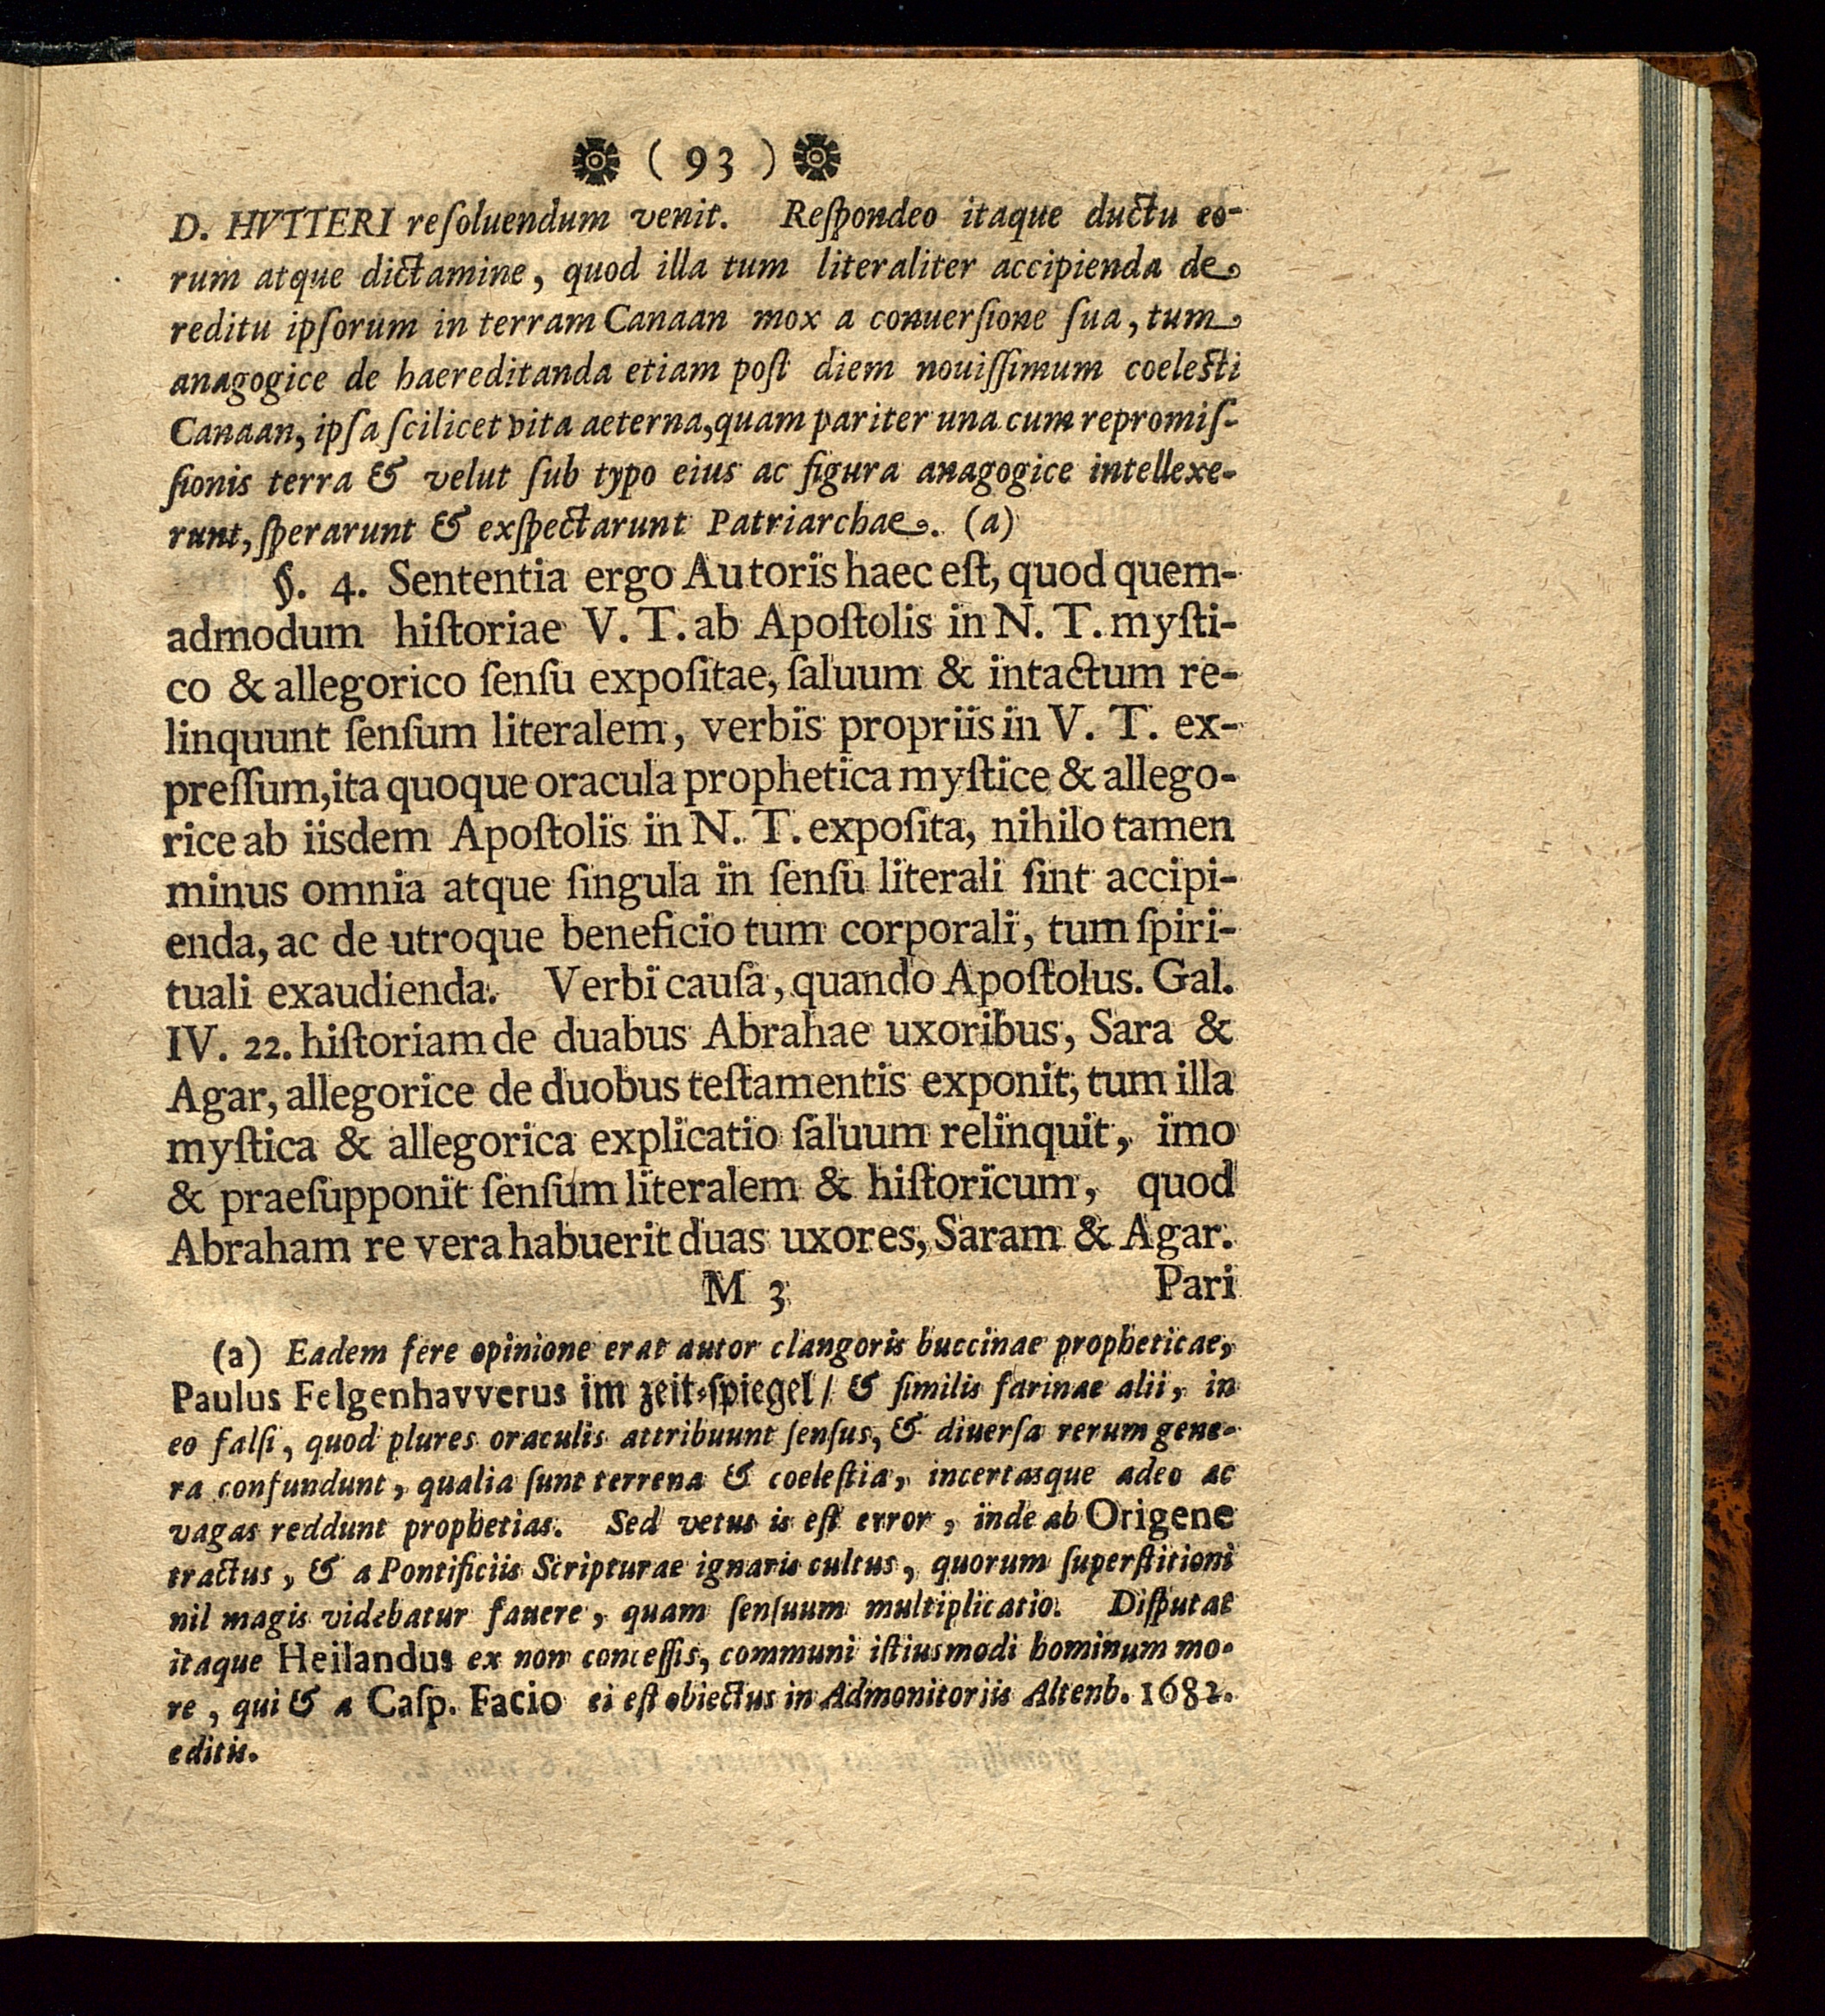 ( 93 )
D. HVTTERI reſoluendum venit. Reſpondeo itaque ductu eo-
rum atque dictamine, quod illa tum literaliter accipienda de
reditu ipſorum in terram Canaan mox a conuerſione ſua, tum
anagogice de haereditanda etiam poſt diem nouiſſimum coeleſti
Canaan, ipſa ſcilicet vita aeterna, quam pariter una cum repromiſ-
ſionis terra & velut ſub typo eius ac figura anagogice intellexe-
runt, ſperarunt & exſpectarunt Patriarchae. (a)
§. 4. Sententia ergo Autoris haec eſt, quod quem-
admodum hiſtoriae V. T. ab Apoſtolis in N. T. myſti-
co & allegorico ſenſu expoſitae, ſaluum & intactum re-
linquunt ſenſum literalem, verbis propriis in V. T. ex-
preſſum, ita quoque oracula prophetica myſtice & allego-
rice ab iisdem Apoſtolis in N. T. expoſita, nihilo tamen
minus omnia atque ſingula in ſenſu literali ſint accipi-
enda, ac de utroque beneficio tum corporali, tum ſpiri-
tuali exaudienda. Verbi cauſa, quando Apoſtolus. Gal.
IV. 22. hiſtoriam de duabus Abrahae uxoribus, Sara &
Agar, allegorice de duobus teſtamentis exponit, tum illa
myſtica & allegorica explicatio ſaluum relinquit, imo
& praeſupponit ſenſum literalem & hiſtoricum, quod
Abraham re vera habuerit duas uxores, Saram & Agar.
M 3 Pari
(a) Eadem fere opinione erat autor clangoris buccinae propheticae,
Paulus Felgenhavverus im zeit-ſpiegel / & ſimilis farinae alii, in
eo falſi, quod plures oraculis attribuunt ſenſus, & diuerſa rerum gene-
ra confundunt, qualia ſunt terrena & coeleſtia, incertasque adeo ac
vagas reddunt prophetias. Sed vetus is eſt error, inde ab Origene
tractus, & a Pontificiis Scripturae ignaris cultus, quorum ſuperſtitioni
nil magis videbatur fauere, quam ſenſuum multiplicatio. Diſputat
itaque Heilandus ex non conceſſis, communi iſtiusmodi hominum mo-
re, qui & a Caſp. Facio ei eſt obiectus in Admonitoriis Altenb. 1682.
editis.